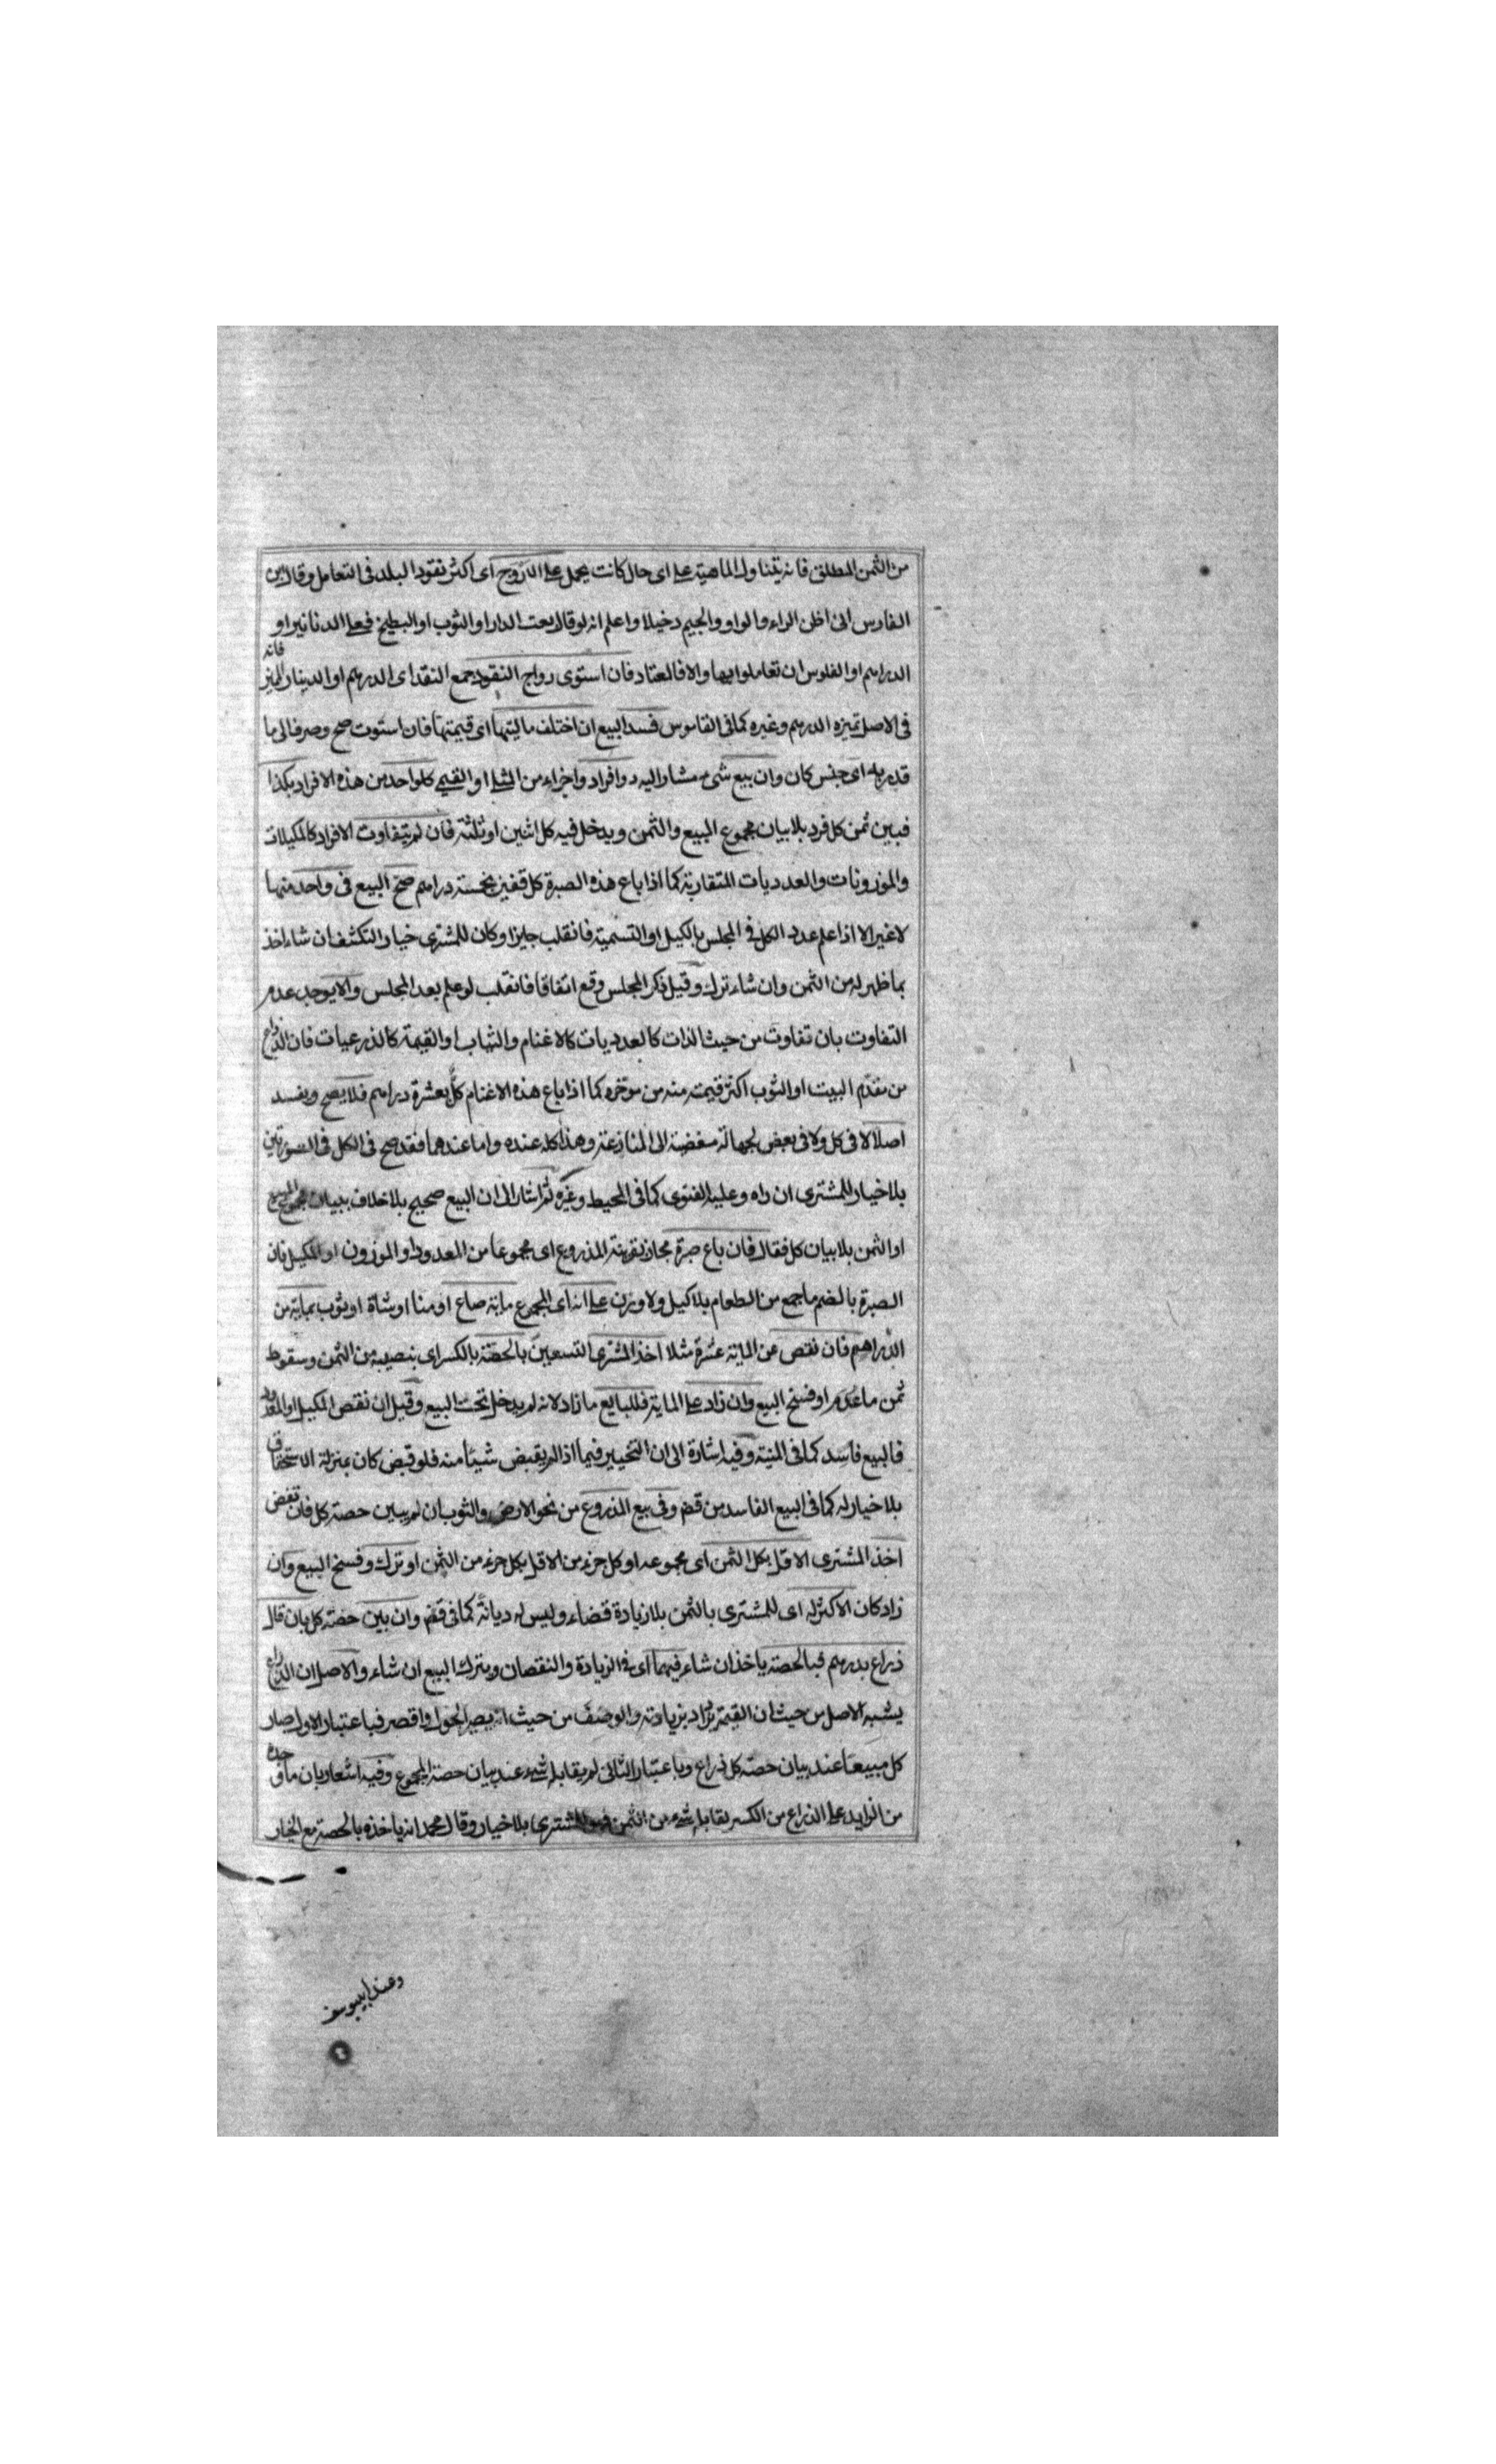 من الثمن المطلق فانه يتناول الماهية على اى حال كانت يحمل على الاروج اى اكثر نقود البلد فى التعامل وقال ابن
الفارس انى اظن الراء والواو والجيم دخيلا واعلم انه لو قال بعت الدار او الثوب او البطيخ فعلى الدنانير او
الدراهم او الفلوس ان تعاملوا بها والا فالمعتاد فان استوى رواج النقود جمع النقد اى الدرهم او الدينار فانه
فى الاصل تميزه الدرهم وغيره كما فى القاموس فسد البيع ان اختلف ماليتها اى قيمتها فان استوت صح وصرف الى ما
قدر به اى جنس كان وان بيع شىء مشار اليه ذو افراد واجزاء من المثلى او القيمى كل واحد من هذه الافراد بكذا
فبين ثمن كل فرد بلا بيان مجموع المبيع والثمن ويدخل فيه كل اثنين او ثلثة فان لم يتفاوت الافراد كالمكيلات
والموزونات والعدديات المتقاربة كما اذا باع هذه الصبرة كل قفيز بخمسة دراهم صح البيع فى واحد منها
لا غير الا اذا علم عدد الكل فى المجلس بالكيل او التسمية فانقلب جايزا وكان للمشترى خيار التكشف ان شاء اخذ
بما ظهر له من الثمن وان شاء ترك وقيل ذكر المجلس وقع اتفاقا فانقلب لو علم بعد المجلس والا يوجب عدم
التفاوت بان تفاوت من حيث الذات كالعدديات كالاغنام والثياب او القيمة كالذرعيات فان الذراع
من مقدّم البيت او الثوب اكثر قيمة منه من موخره كما اذا باع هذه الاغنام كلّ بعشرة دراهم فلا يصح ويفسد
اصلا لا فى كل ولا فى بعض لجهالة مفضية الى المنازعة وهذا كله عنده واما عندهما فقد صح فى الكل فى الصورتين
بلا خيار للمشترى ان راه وعليه الفتوى كما فى المحيط وغيره ثم اشار الى ان البيع صحيح بلا خلاف ببيان مجموع المبيع
او الثمن بلا بيان كل فقال فان باع صبرة مجاز بقرينة المذروع اى مجموعا من المعدود او الموزون او المكيل فان
الصبرة بالضم ما جمع من الطعام بلا كيل ولا وزن على انه اى المجموع ماية صاع او منا او شاة او ثوب بماية من
الدراهم فان نقص من الماية عشرة مثلا اخذ المشترى التسعين بالحصة بالكسر اى بنصيبه من الثمن وسقوط
ثمن ما عدم او فسخ البيع وان زاد على الماية فللبايع ما زاد لانه لم يدخل تحت البيع وقيل ان نقص المكيل او المعدود
فالبيع فاسد كما فى المنية وفيه اشارة الى ان التخيير فيما اذا لم يقبض شيئا منه فلو قبض كان بمنزلة الاستحقاق
بلا خيار له كما فى البيع الفاسد من قض وفى بيع المذروع من نحو الارض والثوب ان لم يبين حصة كل فان نقص
اخذ المشترى الاقل بكل الثمن اى مجموعه او كل جزء من الاقل بكل جزء من الثمن او ترك وفسخ البيع وان
زاد كان الاكثر له اى للمشترى بالثمن بلا زيادة قضاء وليس له ديانة كما فى قض وان بين حصة كل بان قال
ذراع بدرهم فبالحصة ياخذ ان شاء فيهما اى فى الزيادة والنقصان ويترك البيع ان شاء والاصل ان الذراع
يشبه الاصل من حيث ان القيمة يزاد بزيادته والوصف من حيث انه يصير اطول واقصر فباعتبار الاول صار
كل مبيعا عند بيان حصة كل ذراع وباعتبار الثانى لم يقابله شىء عند بيان حصة المجموع وفيه اشعار بان ما
من الزايد على الذراع من الكسر يقابله شىء من الثمن فهو للمشترى بلا خيار وقال محمد انه ياخذه بالحصة مع الخيار
وعند ابى يوسف